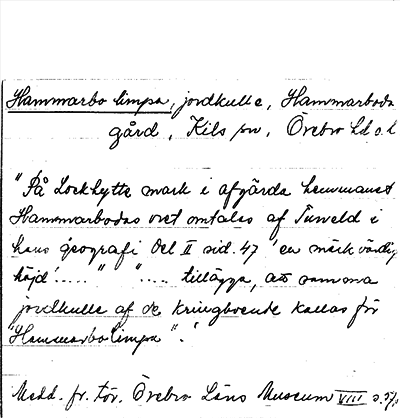 Hammarbo limpa, jordkulle, Hammarboda
gård, Kils sn, Örebro hd o. l
"På Lockhytte mark i afgärda hemmanet
Hammarbodas vret omtalas af Tuneld i
hans geografi Del II sid. 47 'en märkvärdig
höjd'..... " "..... tillägga, att samma
jordkulle af de kringboende kallas för
'Hammarbolimpa'".
Medd. fr. för. Örebro Läns Museum VIII s. 57.